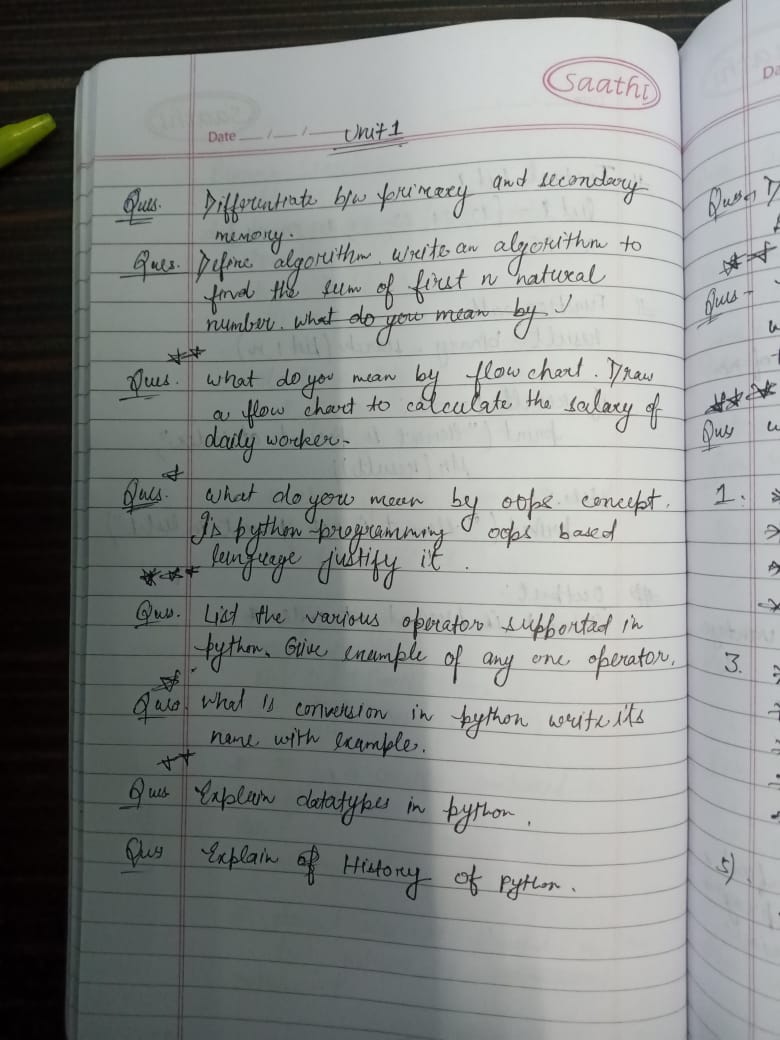 Saathi
Date __/__/__ Unit 1
Ques. Differentiate b/w primary and secondary
memory.
Ques. Define algorithm. write an algorithm to
find the sum of first n natural
number. what do you mean by
Ques. what do you mean by flow chart. Draw
a flow chart to calculate the salary of
daily worker.
Ques. what do you mean by oops concept.
Is python programming oops based
language justify it.
Ques. List the various operator supported in
python. Give example of any one operator.
Ques. what is conversion in python write its
name with example.
Ques Explain datatypes in python.
Ques Explain of History of Python.
Ques
Ques
Ques
1.
3.
5).